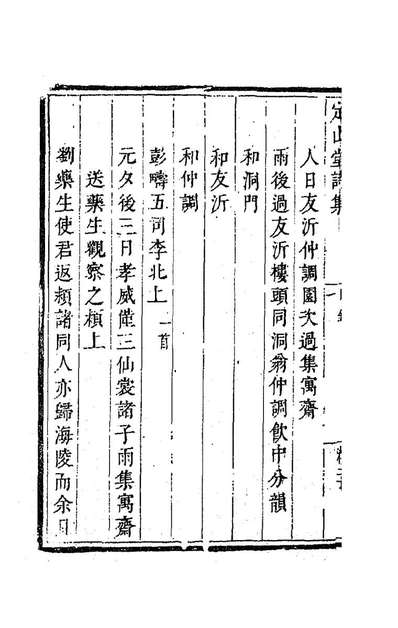 定山堂詩集
人日友沂仲調園次過集寓齋
雨後過友沂樓頭同洞翁仲調飲中分韻
和洞門
和友沂
和仲調
彭疇五司李北上 一首
元夕後三日孝威僅三仙裳諸子雨集寓齋
送藥生觀察之槙上
劉藥生使君返頳諸同人亦歸海陵而余